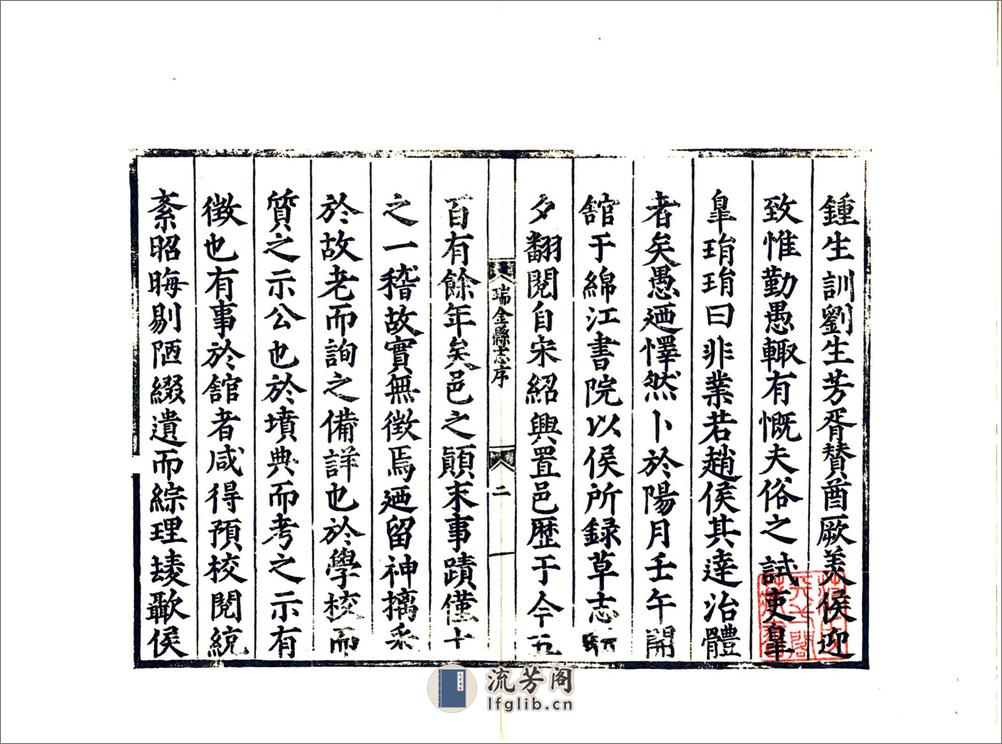 鍾生訓劉生芳胥賛酋厥美侯迎
致惟勤愚輙有慨夫俗之試吏皐
皐琑琑曰非業若趙侯其達治體
者矣愚廼懌然卜於陽月壬午開
舘于綿江書院以侯所録草志
夕翻閱自宋紹興置邑歷于今五
瑞金縣志序
二
百有餘年矣邑之顛末事蹟僅十
之一稽故實無徴焉廼留神摛采
於故老而詢之備詳也於學校而
質之示公也於墳典而考之示有
徴也有事於舘者咸得預校閱統
紊昭晦剔陋綴遺而綜理䔖歝侯
流芳阁
lfglib.cn